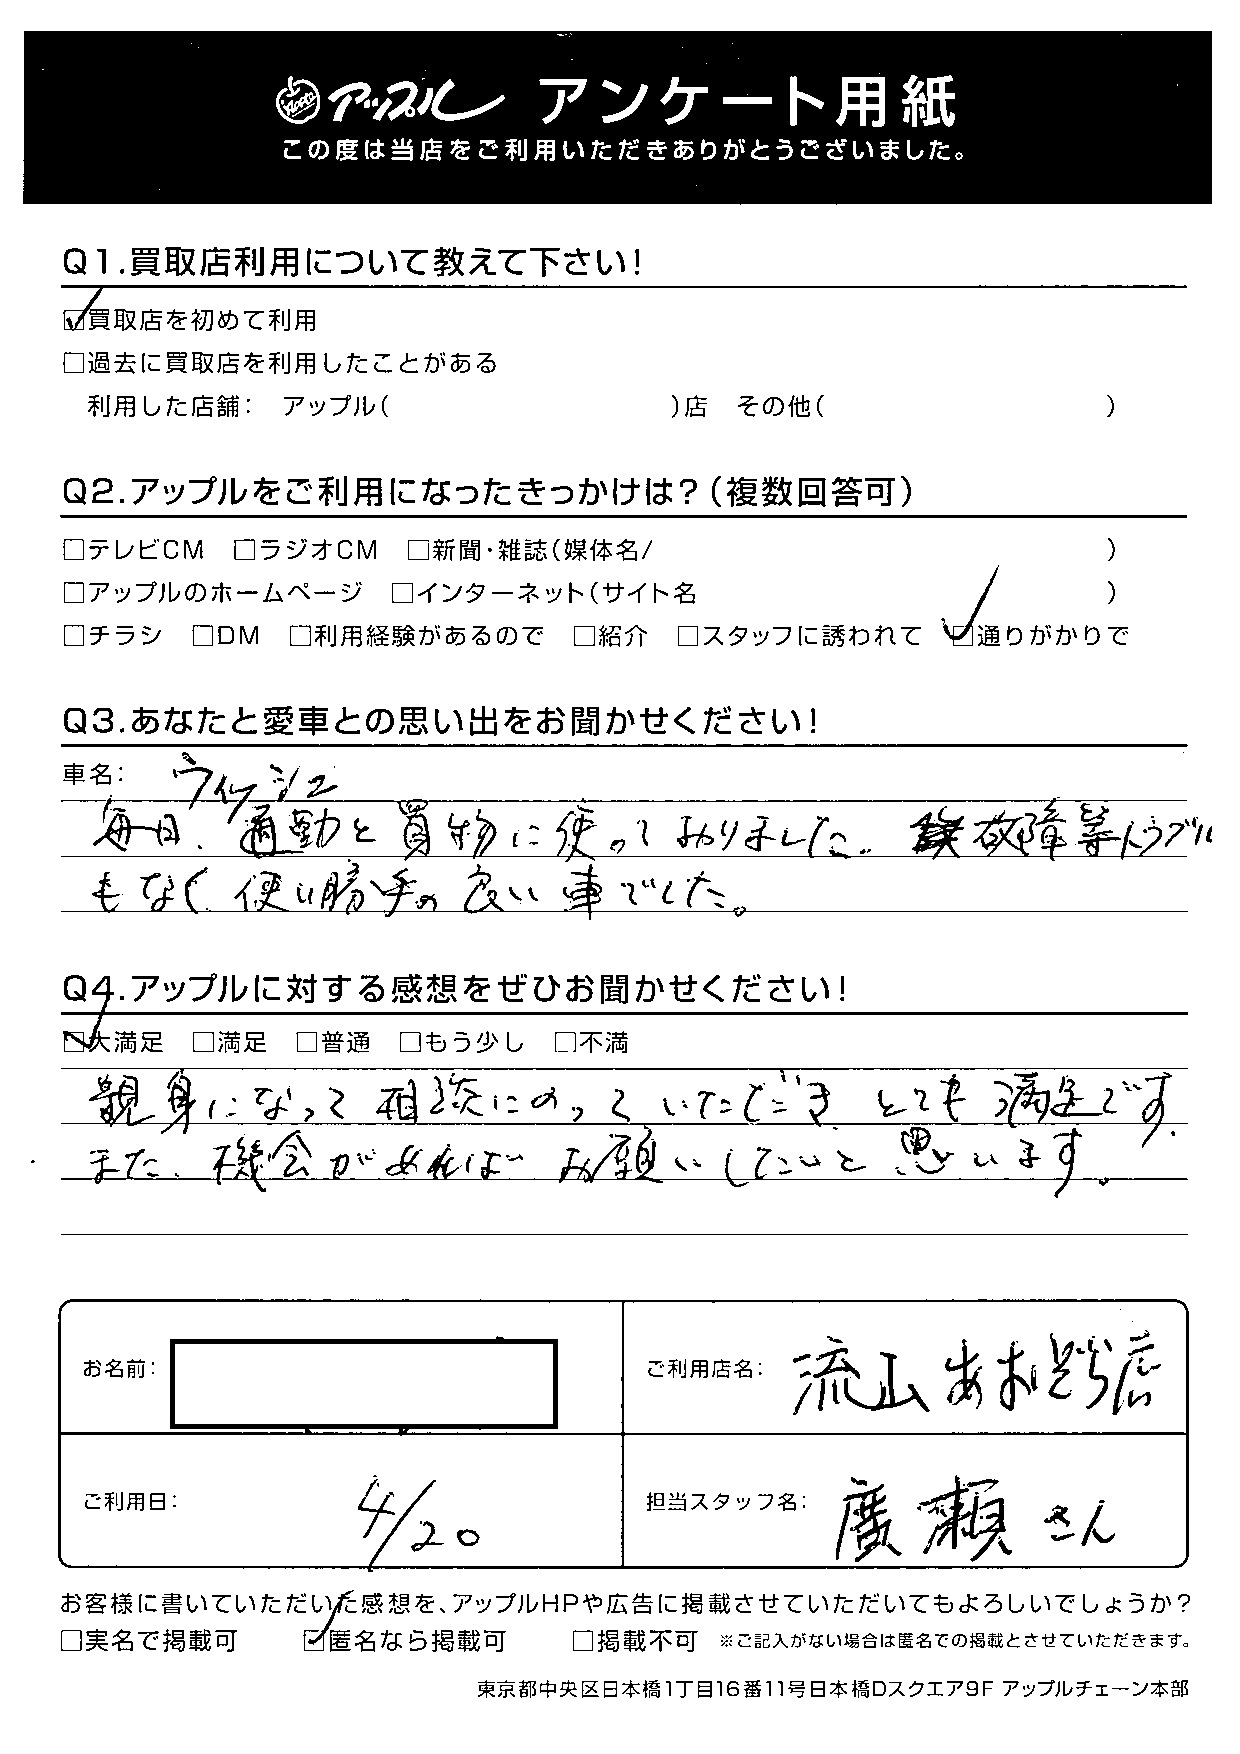 Apple アップル アンケート用紙
この度は当店をご利用いただきありがとうございました。
Q1.買取店利用について教えて下さい!
☑買取店を初めて利用
□過去に買取店を利用したことがある
利用した店舗: アップル( )店 その他( )
Q2.アップルをご利用になったきっかけは?(複数回答可)
□テレビCM □ラジオCM □新聞・雑誌(媒体名/ )
□アップルのホームページ □インターネット(サイト名 )
□チラシ □DM □利用経験があるので □紹介 □スタッフに誘われて ☑通りがかりで
Q3.あなたと愛車との思い出をお聞かせください!
車名: ウィッシュ
毎日、通勤と買物に使っておりました。故障等トラブル
もなく使い勝手の良い車でした。
Q4.アップルに対する感想をぜひお聞かせください!
☑大満足 □満足 □普通 □もう少し □不満
親身になって相談にのっていただきとても満足です。
また、機会があればお願いしたいと思います。
お名前: ご利用店名: 流山あおぞら店
ご利用日: 4/20 担当スタッフ名: 廣瀬さん
お客様に書いていただいた感想を、アップルHPや広告に掲載させていただいてもよろしいでしょうか?
□実名で掲載可 ☑匿名なら掲載可 □掲載不可 ※ご記入がない場合は匿名での掲載とさせていただきます。
東京都中央区日本橋1丁目16番11号日本橋Dスクエア9F アップルチェーン本部